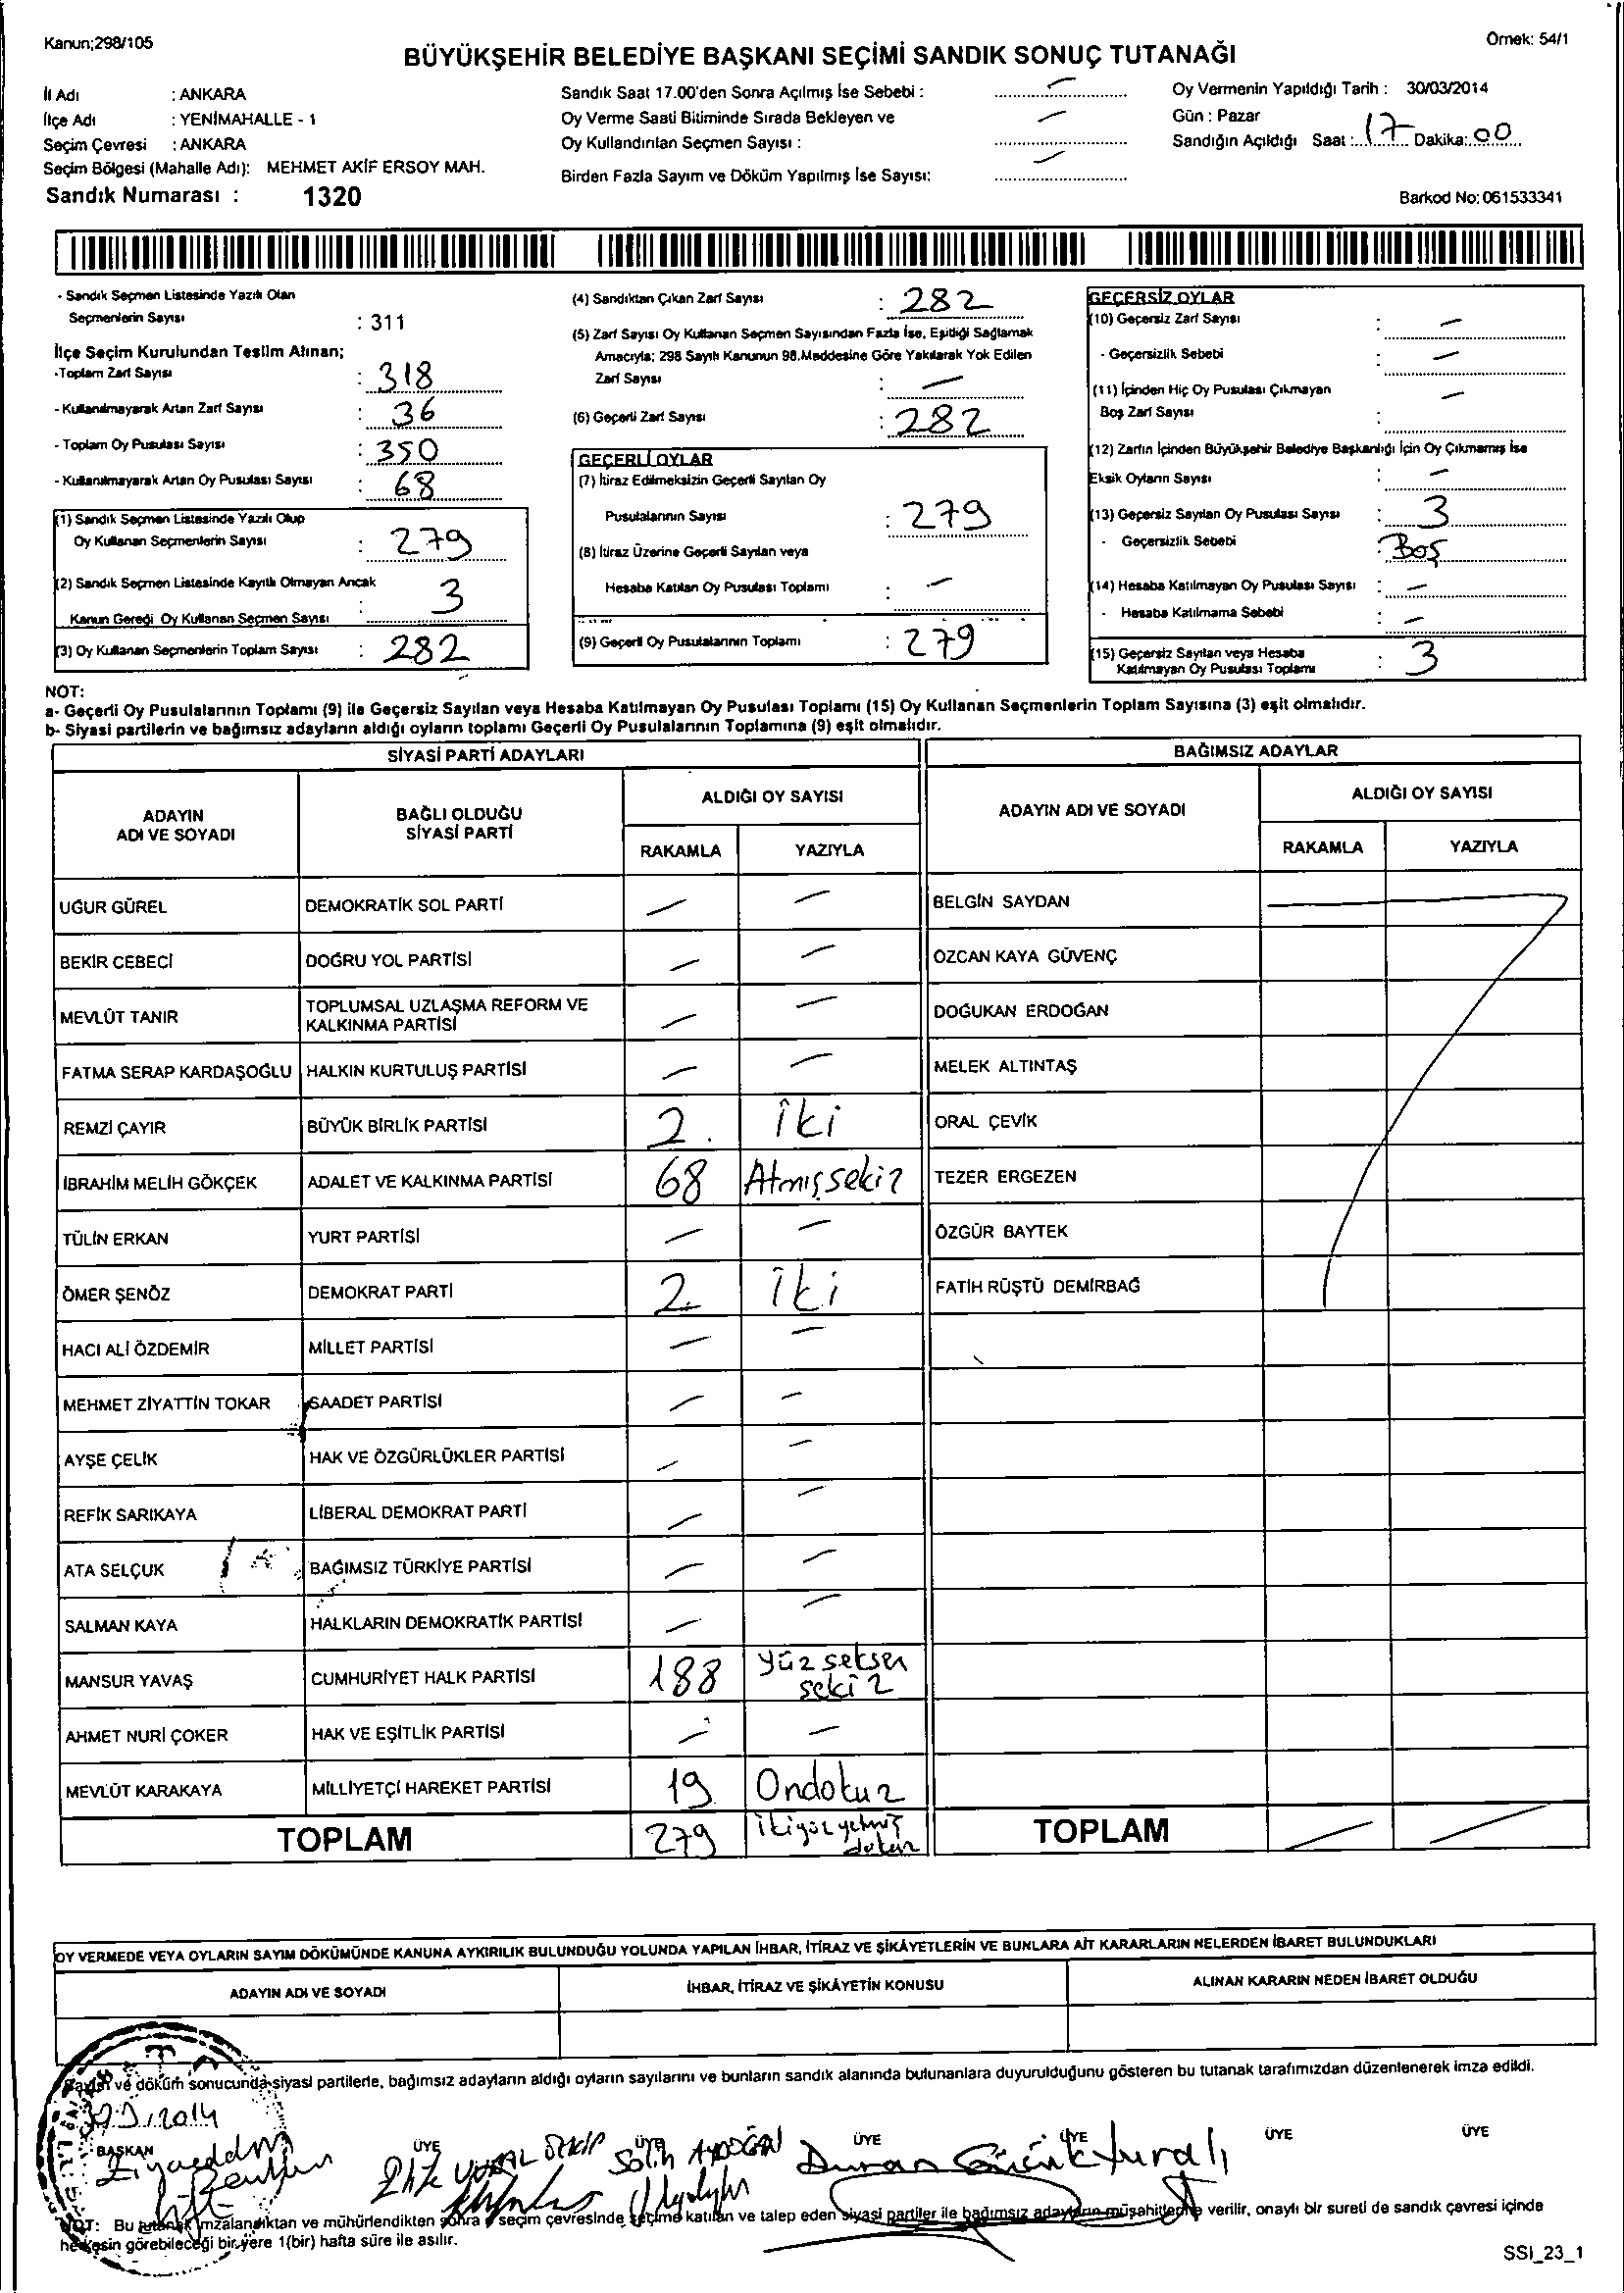 Kanun;298/105
Örnek: 54/1
BÜYÜKŞEHİR BELEDİYE BAŞKANI SEÇİMİ SANDIK SONUÇ TUTANAĞI
İl Adı : ANKARA
İlçe Adı : YENİMAHALLE - 1
Seçim Çevresi : ANKARA
Seçim Bölgesi (Mahalle Adı): MEHMET AKİF ERSOY MAH.
Sandık Numarası : 1320
Sandık Saat 17.00'den Sonra Açılmış İse Sebebi : –
Oy Verme Saati Bitiminde Sırada Bekleyen ve –
Oy Kullandırılan Seçmen Sayısı :
Birden Fazla Sayım ve Döküm Yapılmış İse Sayısı: –
Oy Vermenin Yapıldığı Tarih : 30/03/2014
Gün : Pazar
Sandığın Açıldığı Saat : 17 Dakika: 00
Barkod No: 061533341
- Sandık Seçmen Listesinde Yazılı Olan
Seçmenlerin Sayısı : 311
İlçe Seçim Kurulundan Teslim Alınan;
-Toplam Zarf Sayısı : 318
- Kullanılmayarak Artan Zarf Sayısı : 36
- Toplam Oy Pusulası Sayısı : 350
- Kullanılmayarak Artan Oy Pusulası Sayısı : 68
(1) Sandık Seçmen Listesinde Yazılı Olup
Oy Kullanan Seçmenlerin Sayısı : 279
(2) Sandık Seçmen Listesinde Kayıtlı Olmayan Ancak
Kanun Gereği Oy Kullanan Seçmen Sayısı : 3
(3) Oy Kullanan Seçmenlerin Toplam Sayısı : 282
(4) Sandıktan Çıkan Zarf Sayısı : 282
(5) Zarf Sayısı Oy Kullanan Seçmen Sayısından Fazla İse, Eşitliği Sağlamak
Amacıyla; 298 Sayılı Kanunun 98.Maddesine Göre Yakılarak Yok Edilen
Zarf Sayısı : –
(6) Geçerli Zarf Sayısı : 282
GEÇERLİ OYLAR
(7) İtiraz Edilmeksizin Geçerli Sayılan Oy
Pusulalarının Sayısı : 279
(8) İtiraz Üzerine Geçerli Sayılan veya
Hesaba Katılan Oy Pusulası Toplamı : –
(9) Geçerli Oy Pusulalarının Toplamı : 279
GEÇERSİZ OYLAR
(10) Geçersiz Zarf Sayısı : –
- Geçersizlik Sebebi : –
(11) İçinden Hiç Oy Pusulası Çıkmayan
Boş Zarf Sayısı : –
(12) Zarfın İçinden Büyükşehir Belediye Başkanlığı İçin Oy Çıkmamış İse
Eksik Oyların Sayısı : –
(13) Geçersiz Sayılan Oy Pusulası Sayısı : 3
- Geçersizlik Sebebi : Boş
(14) Hesaba Katılmayan Oy Pusulası Sayısı : –
- Hesaba Katılmama Sebebi : –
(15) Geçersiz Sayılan veya Hesaba
Katılmayan Oy Pusulası Toplamı : 3
NOT:
a- Geçerli Oy Pusulalarının Toplamı (9) ile Geçersiz Sayılan veya Hesaba Katılmayan Oy Pusulası Toplamı (15) Oy Kullanan Seçmenlerin Toplam Sayısına (3) eşit olmalıdır.
b- Siyasi partilerin ve bağımsız adayların aldığı oyların toplamı Geçerli Oy Pusulalarının Toplamına (9) eşit olmalıdır.
SİYASİ PARTİ ADAYLARI
ADAYIN ADI VE SOYADI
BAĞLI OLDUĞU SİYASİ PARTİ
ALDIĞI OY SAYISI
RAKAMLA YAZIYLA
UĞUR GÜREL DEMOKRATİK SOL PARTİ – –
BEKİR CEBECİ DOĞRU YOL PARTİSİ – –
MEVLÜT TANIR TOPLUMSAL UZLAŞMA REFORM VE
KALKINMA PARTİSİ – –
FATMA SERAP KARDAŞOĞLU HALKIN KURTULUŞ PARTİSİ – –
REMZİ ÇAYIR BÜYÜK BİRLİK PARTİSİ 2. iki
İBRAHİM MELİH GÖKÇEK ADALET VE KALKINMA PARTİSİ 68 Atmışsekiz
TÜLİN ERKAN YURT PARTİSİ – –
ÖMER ŞENÖZ DEMOKRAT PARTİ 2. iki
HACI ALİ ÖZDEMİR MİLLET PARTİSİ – –
MEHMET ZİYATTİN TOKAR SAADET PARTİSİ – –
AYŞE ÇELİK HAK VE ÖZGÜRLÜKLER PARTİSİ – –
REFİK SARIKAYA LİBERAL DEMOKRAT PARTİ – –
ATA SELÇUK BAĞIMSIZ TÜRKİYE PARTİSİ – –
SALMAN KAYA HALKLARIN DEMOKRATİK PARTİSİ – –
MANSUR YAVAŞ CUMHURİYET HALK PARTİSİ 188 yüz seksen
sekiz
AHMET NURİ ÇOKER HAK VE EŞİTLİK PARTİSİ – –
MEVLÜT KARAKAYA MİLLİYETÇİ HAREKET PARTİSİ 19 Ondokuz
TOPLAM 279 ikiyüzyetmiş
dokuz
BAĞIMSIZ ADAYLAR
ADAYIN ADI VE SOYADI
ALDIĞI OY SAYISI
RAKAMLA YAZIYLA
BELGİN SAYDAN
ÖZCAN KAYA GÜVENÇ
DOĞUKAN ERDOĞAN
MELEK ALTINTAŞ
ORAL ÇEVİK
TEZER ERGEZEN
ÖZGÜR BAYTEK
FATİH RÜŞTÜ DEMİRBAĞ
TOPLAM – –
OY VERMEDE VEYA OYLARIN SAYIM DÖKÜMÜNDE KANUNA AYKIRILIK BULUNDUĞU YOLUNDA YAPILAN İHBAR, İTİRAZ VE ŞİKÂYETLERİN VE BUNLARA AİT KARARLARIN NELERDEN İBARET BULUNDUKLARI
ADAYIN ADI VE SOYADI İHBAR, İTİRAZ VE ŞİKÂYETİN KONUSU ALINAN KARARIN NEDEN İBARET OLDUĞU
Sayım ve döküm sonucunda siyasi partilerle, bağımsız adayların aldığı oyların sayılarını ve bunların sandık alanında bulunanlara duyurulduğunu gösteren bu tutanak tarafımızdan düzenlenerek imza edildi.
BAŞKAN ÜYE ÜYE ÜYE ÜYE ÜYE ÜYE
Salih AYDOĞAN Duran
NOT: Bu tutanak imzalandıktan ve mühürlendikten sonra seçim çevresinde seçime katılan ve talep eden siyasi partiler ile bağımsız adayların müşahitlerine verilir, onaylı bir sureti de sandık çevresi içinde
herkesin görebileceği bir yere 1(bir) hafta süre ile asılır.
SSI_23_1